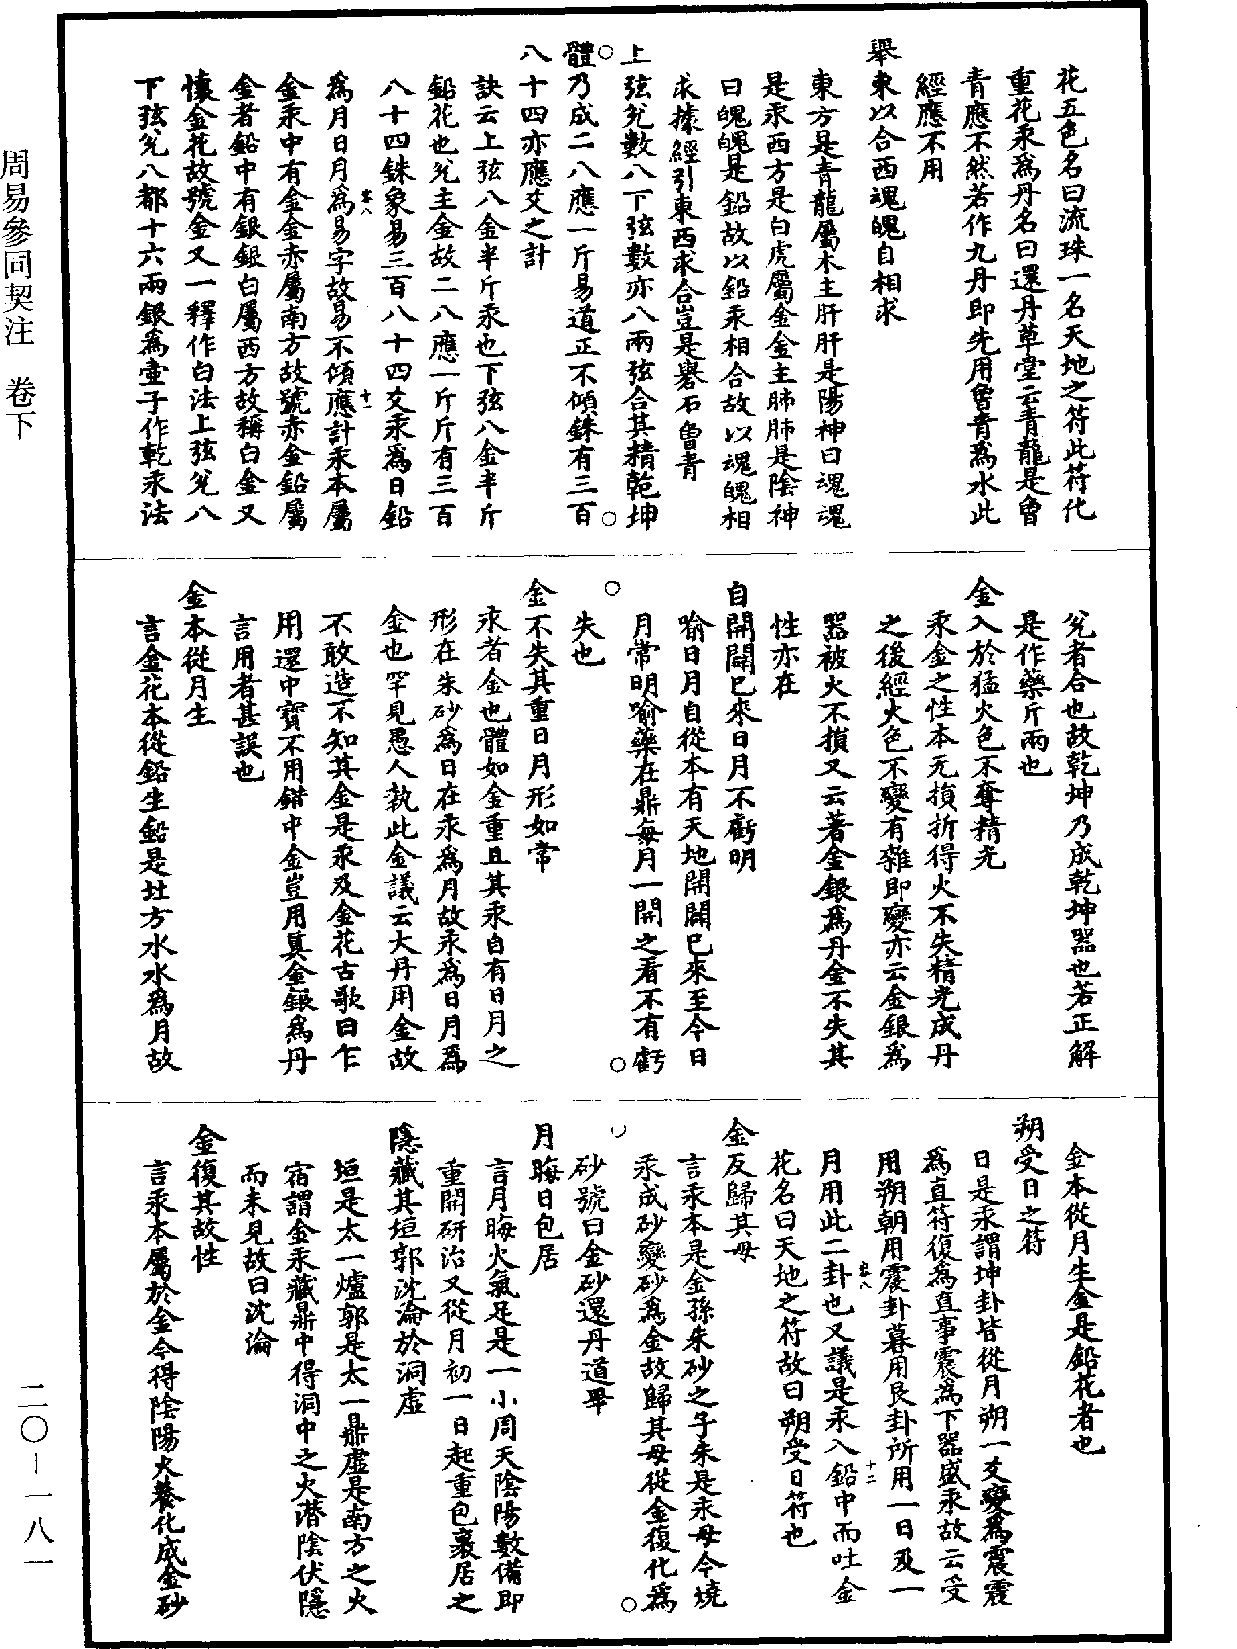 花五色名曰流珠一名天地之符此符化
重花汞爲丹名曰還丹草堂云青龍是曾
青應不然若作九丹即先用曾青爲水此
經應不用
舉東以合西魂魄自相求
東方是青龍屬木主肝肝是陽神曰魂魂
是汞西方是白虎屬金金主肺肺是陰神
曰魄魄是鉛故以鉛汞相合故以魂魄相
求據經引東西求合豈是礜石曾青
上弦兌數八下弦數亦八兩弦合其精乾坤
體乃成二八應一斤易道正不傾銖有三百
八十四亦應爻之計
訣云上弦八金半斤汞也下弦八金半斤
鉛花也兌主金故二八應一斤斤有三百
八十四銖象易三百八十四爻汞爲日鉛
爲月日月爲易字故易不傾應計汞本屬
金汞中有金金赤屬南方故號赤金鉛屬
金者鉛中有銀銀白屬西方故稱白金又
懷金花故號金又一釋作白法上弦兌八
下弦兌八都十六兩銀爲壷子作乾汞法
兌者合也故乾坤乃成乾坤器也若正解
是作藥斤兩也
金入於猛火色不奪精光
汞金之性本无損折得火不失精光成丹
之後經火色不變有雜即變亦云金銀爲
器被火不損又云著金銀爲丹金不失其
性亦在
自開闢已來日月不虧明
喻日月自從本有天地開闢已來至今日
月常明喻藥在鼎每月一開之看不有虧
失也
金不失其重日月形如常
汞者金也體如金重且其汞自有日月之
形在朱砂爲日在汞爲月故汞爲日月爲
金也罕見愚人執此金議云大丹用金故
不敢造不知其金是汞及金花古歌曰乍
用還中寶不用錯中金豈用真金銀爲丹
言用者甚誤也
金本從月生
言金花本從鉛生鉛是北方水水爲月故
金本從月生金是鉛花者也
朔受日之符
日是汞謂坤卦皆從月朔一爻變爲震震
爲直符復爲直事震爲下器盛汞故云受
用朔朝用震卦暮用艮卦所用一日及一
月用此二卦也又議是汞八鉛中而吐金
花名曰天地之符故曰朔受日符也
金反歸其母
言汞本是金孫朱砂之子朱是汞母今燒
汞成砂變砂爲金故歸其母從金復化爲
砂號曰金砂還丹道畢
月晦日包居
言月晦火氣足是一小周天陰陽數備即
重開研治又從月初一日起重包裹居之
隱藏其垣郭沈淪於洞虛
垣是太一爐郭是太一鼎虛是南方之火
宿謂金汞藏鼎中得洞中之火潛陰伏隱
而未見故曰沈淪
金復其故性
言汞本屬於金今得陰陽火養化成金砂
周易參同契注　卷下
二〇－一八一